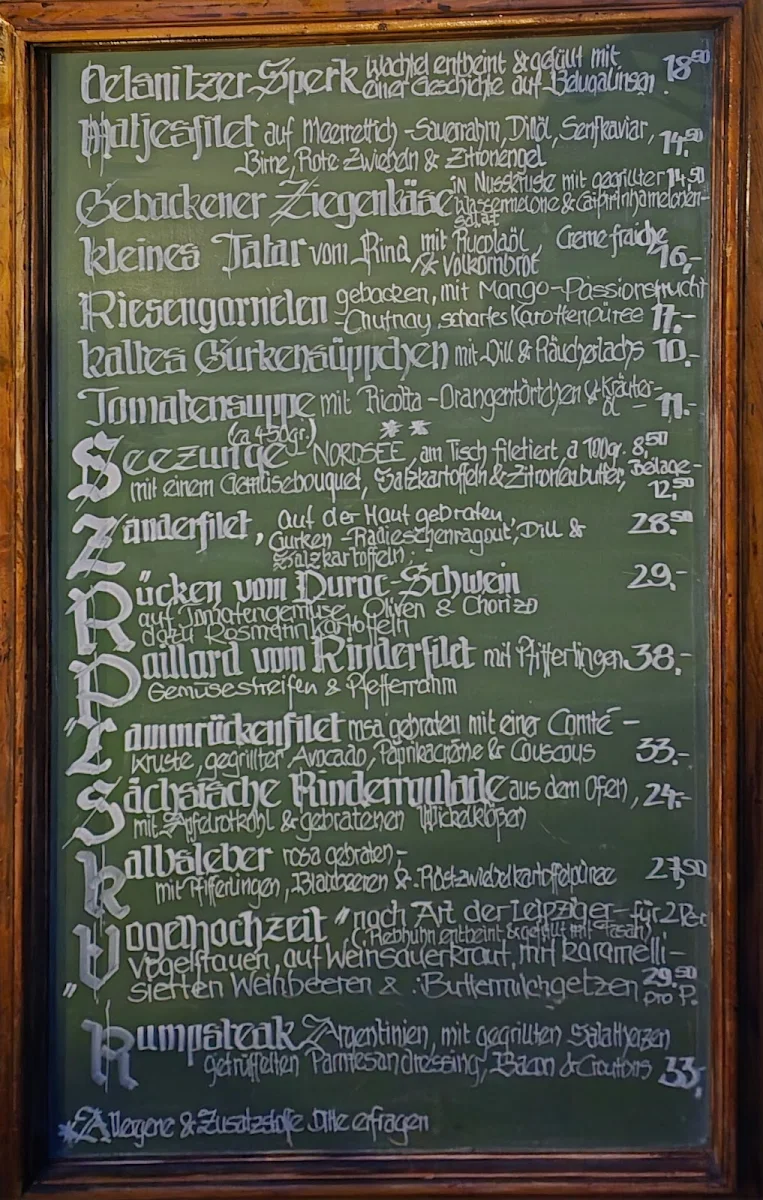 Oelsnitzer Sperk Wachtel entbeint & gefüllt mit
einer Geschichte auf Belugalinsen. 18⁵⁰
Matjesfilet auf Meerrettich-Sauerrahm, Dillöl, Senfkaviar,
Birne, Rote Zwiebeln & Zitronengel 14.⁵⁰
Gebackener Ziegenkäse in Nusskruste mit gegrillter 14,50
Wassermelone & Caipirinhamelonen-
salat
kleines Tatar vom Rind mit Rucolaöl, Creme fraiche
& Vollkornbrot 16,-
Riesengarnelen gebacken, mit Mango-Passionsfrucht
-Chutney, scharfes Karottenpüree 17.-
kaltes Gurkensüppchen mit Dill & Räucherlachs 10.-
Tomatensuppe mit Ricotta-Orangentörtchen & Kräuter-
öl - 11.-
**
(ca 450gr.)
Seezunge NORDSEE, am Tisch filetiert, a 100gr. 8,⁵⁰
mit einem Gemüsebouquet, Salzkartoffeln & Zitronenbutter, Beilage-
12,⁵⁰
Zanderfilet, auf der Haut gebraten 28.⁵⁰
Gurken-Radieschenragout, Dill &
Salzkartoffeln.
Rücken vom Duroc-Schwein 29.-
auf Tomatengemüse, Oliven & Chorizo
dazu Rosmarinkartoffeln
Paillard vom Rinderfilet mit Pfifferlingen 38.-
Gemüsestreifen & Pfefferrahm
Lammrückenfilet rosa gebraten mit einer Comté-
kruste, gegrillter Avocado, Paprikacrème & Couscous 33.-
Sächsische Rinderroulade aus dem Ofen, 24.-
mit Apfelrotkohl & gebratenen Wickelklößen
Kalbsleber rosa gebraten,-
mit Pfifferlingen, Blaubeeren & Röstzwiebelkartoffelpüree 27,50
"Vogelhochzeit" nach Art der Leipziger - für 2 Per
(Rebhuhn entbeint & gefüllt mit Fasan)
Vogelfrauen, auf Weinsauerkraut, mit karamelli-
sierten Weinbeeren & Buttermilchgetzen 29.⁵⁰
pro P.
Rumpsteak Argentinien, mit gegrillten Salatherzen
getrüffelten Parmesandressing, Bacon & Croutons 33,-
*Allergene & Zusatzstoffe bitte erfragen